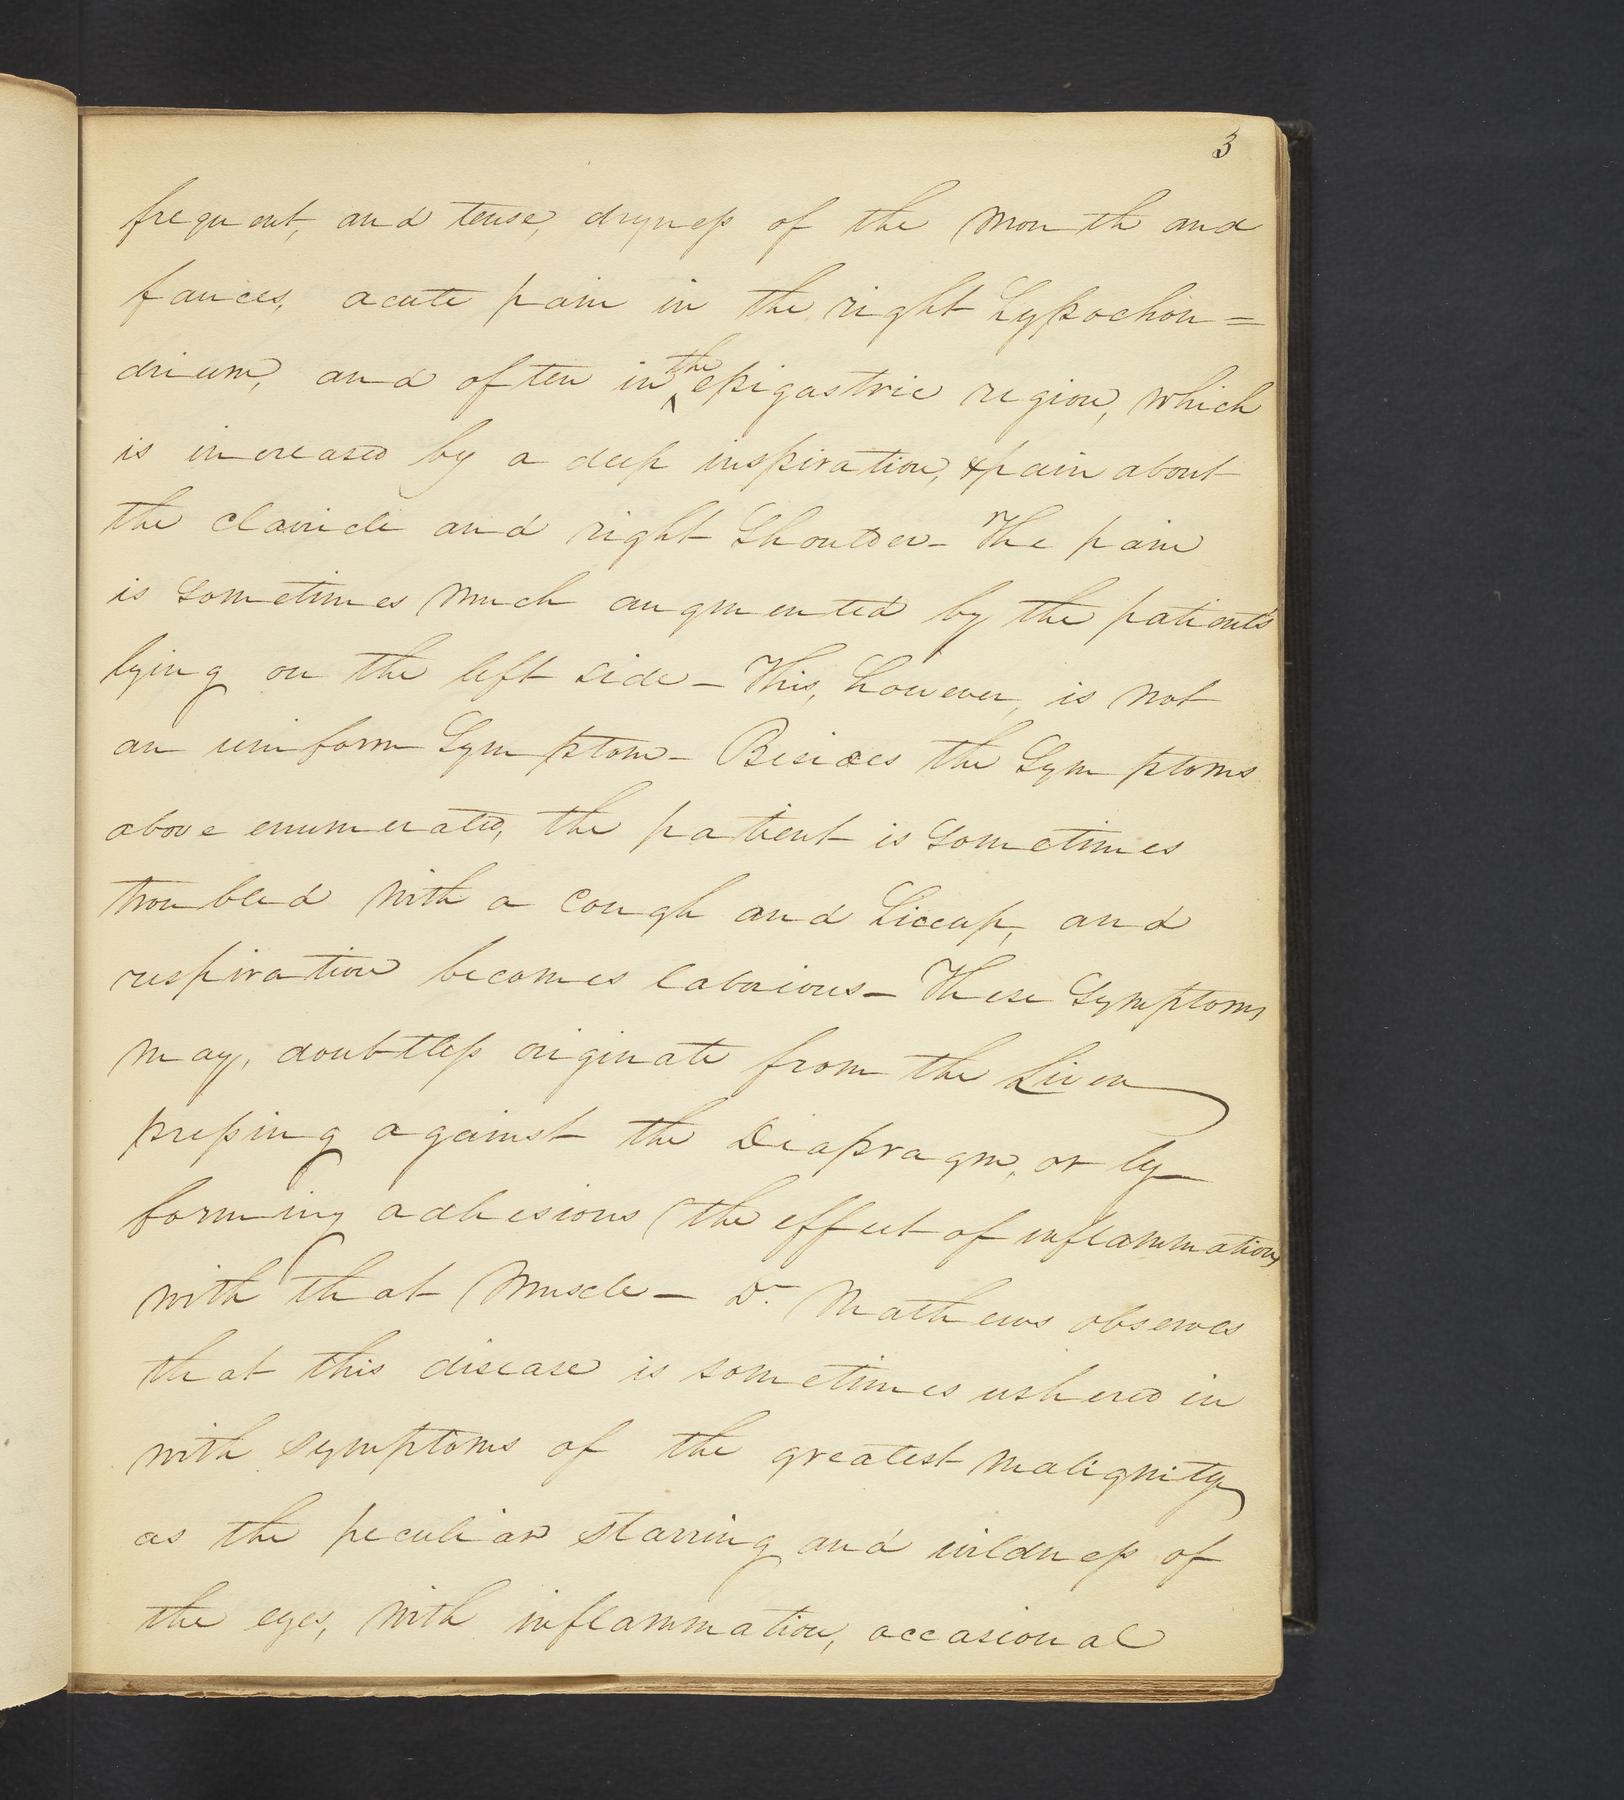 3
frequent, and tense, dryness of the mouth and
fauces, acute pain in the right hypochon=
drium, and often in the epigastric region, which
is increased by a deep inspiration, & pain about
the clavicle and right Shoulder– The pain
is sometimes much augmented by the patients
lying on the left side– This, however, is not
an uniform Symptom– Besides the Symptoms
above enumerated, the patient is sometimes
troubled with a cough and hiccup, and
respiration becomes laborious– These Symptoms
may, doubtless originate from the Liver
pressing against the Diapragm, or by
forming adhesions (the effect of inflammation)
with that Muscle– Dr. Mathews observes
that this disease is sometimes ushered in
with symptoms of the greatest malignity
as the peculiar starring and wildness of
the eyes, with inflammation, occasional